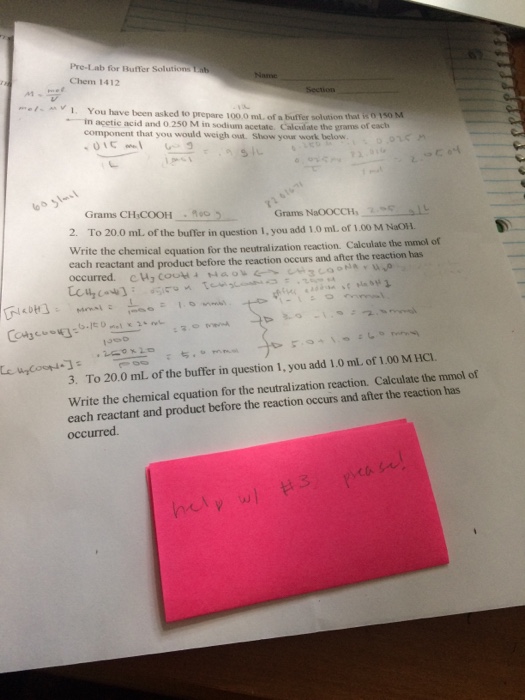 Pre-Lab for Buffer Solutions Lab
Name
Chem 1412
Section
M = mol/V
mol = MV
1. You have been asked to prepare 100.0 mL of a buffer solution that is 0.150 M
in acetic acid and 0.250 M in sodium acetate. Calculate the grams of each
component that you would weigh out. Show your work below.
.015 mol
L
60 g/mol
Grams CH₃COOH .900 g
Grams NaOOCCH₃
2. To 20.0 mL of the buffer in question 1, you add 1.0 mL of 1.00 M NaOH.
Write the chemical equation for the neutralization reaction. Calculate the mmol of
each reactant and product before the reaction occurs and after the reaction has
occurred. CH₃COOH + NaOH ⟷ CH₃COONa + H₂O
[NaOH]: mmol = 1/1000 = 1.0 mmol
1-1 = 0 mmol
[CH₃COOH] = 0.150
1000
3.0 - 1.0 = 2.0 mmol
[CH₃COONa] = .250 x 20
= 5.0 mmol
5.0 + 1.0 = 6.0 mmol
3. To 20.0 mL of the buffer in question 1, you add 1.0 mL of 1.00 M HCl.
Write the chemical equation for the neutralization reaction. Calculate the mmol of
each reactant and product before the reaction occurs and after the reaction has
occurred.
help w/ #3 please!